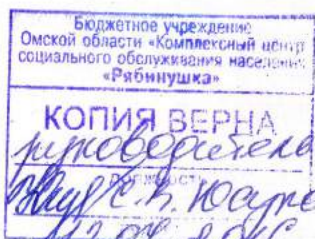 Бюджетное учреждение
Омской области «Комплексный центр
социального обслуживания населения
«Рябинушка»
КОПИЯ ВЕРНА
руководитель
должность